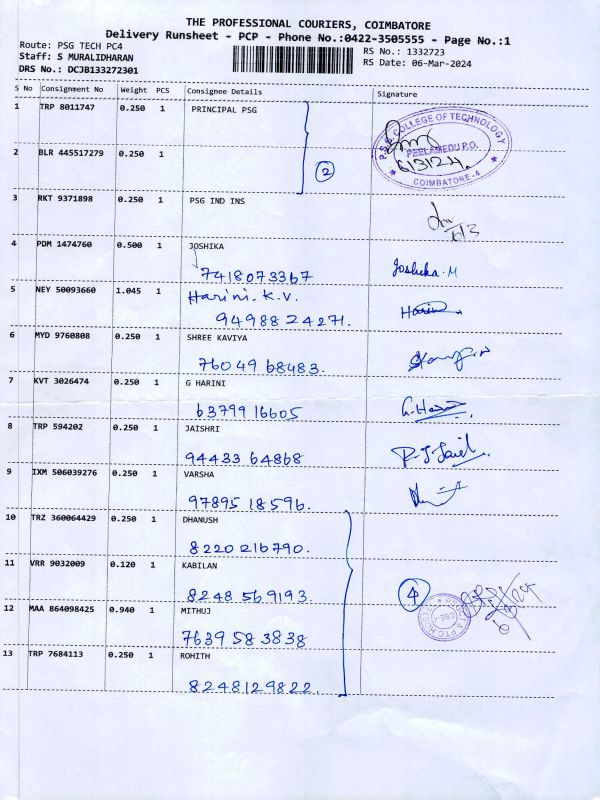 THE PROFESSIONAL COURIERS, COIMBATORE
Delivery Runsheet - PCP - Phone No.:0422-3505555 - Page No.:1
Route: PSG TECH PC4
RS No.: 1332723
Staff: S MURALIDHARAN
RS Date: 06-Mar-2024
DRS No.: DCJB133272301
S No Consignment No Weight PCS Consignee Details Signature
1 TRP 8011747 0.250 1 PRINCIPAL PSG
P.S.G. COLLEGE OF TECHNOLOGY
PEELAMEDU P.O.
COIMBATORE-4
6/3/24.
2 BLR 445517279 0.250 1
2
3 RKT 9371898 0.250 1 PSG IND INS
6/3
4 PDM 1474760 0.500 1 JOSHIKA
7418073367 Joshika.M
5 NEY 50093660 1.045 1 Harini.K.V.
9498824271. Harini
6 MYD 9760808 0.250 1 SHREE KAVIYA
7604968483.
7 KVT 3026474 0.250 1 G HARINI
6379916605 G.Harini
8 TRP 594202 0.250 1 JAISHRI
9443364868
9 IXM 506039276 0.250 1 VARSHA
9789518596.
10 TRZ 360064429 0.250 1 DHANUSH
8220216790.
11 VRR 9032009 0.120 1 KABILAN
8248569193. 4
12 MAA 864098425 0.940 1 MITHUJ
7639583838
13 TRP 7684113 0.250 1 ROHITH
8248129822.